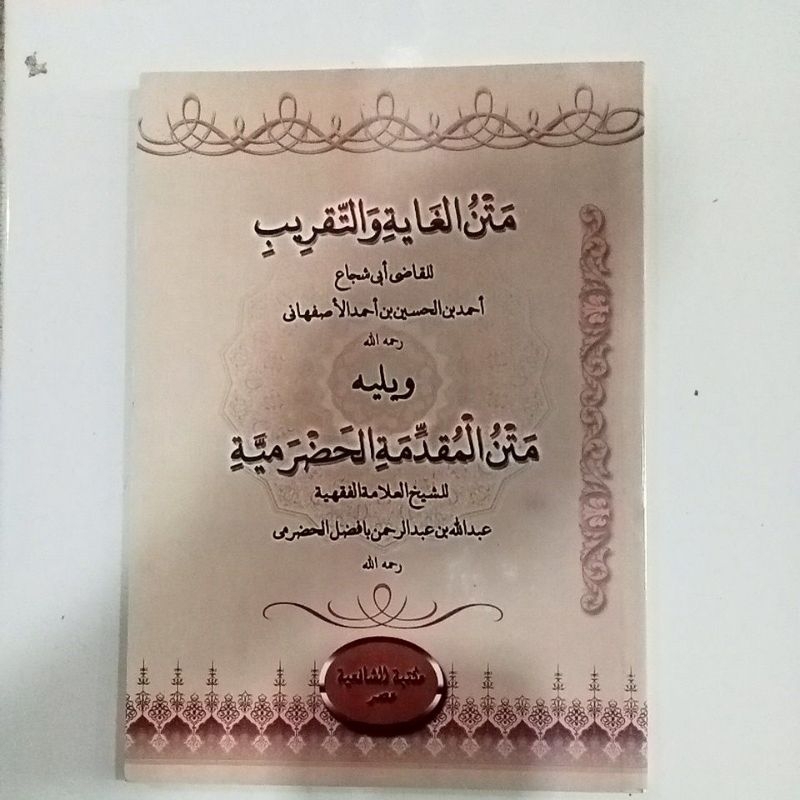 مَتْنُ الغَايَةِ وَالتَّقرِيبِ
للقاضى أبى شجاع
أحمد بن الحسين بن أحمد الأصفهانى
رحمه الله
ويليه
مَتْنُ الْمُقَدِّمَةِ الحَضْرَمِيَّةِ
للشيخ العلامة الفقهية
عبدالله بن عبدالرحمن بافضل الحضرمى
رحمه الله
مكتبة الشافعية
مصر